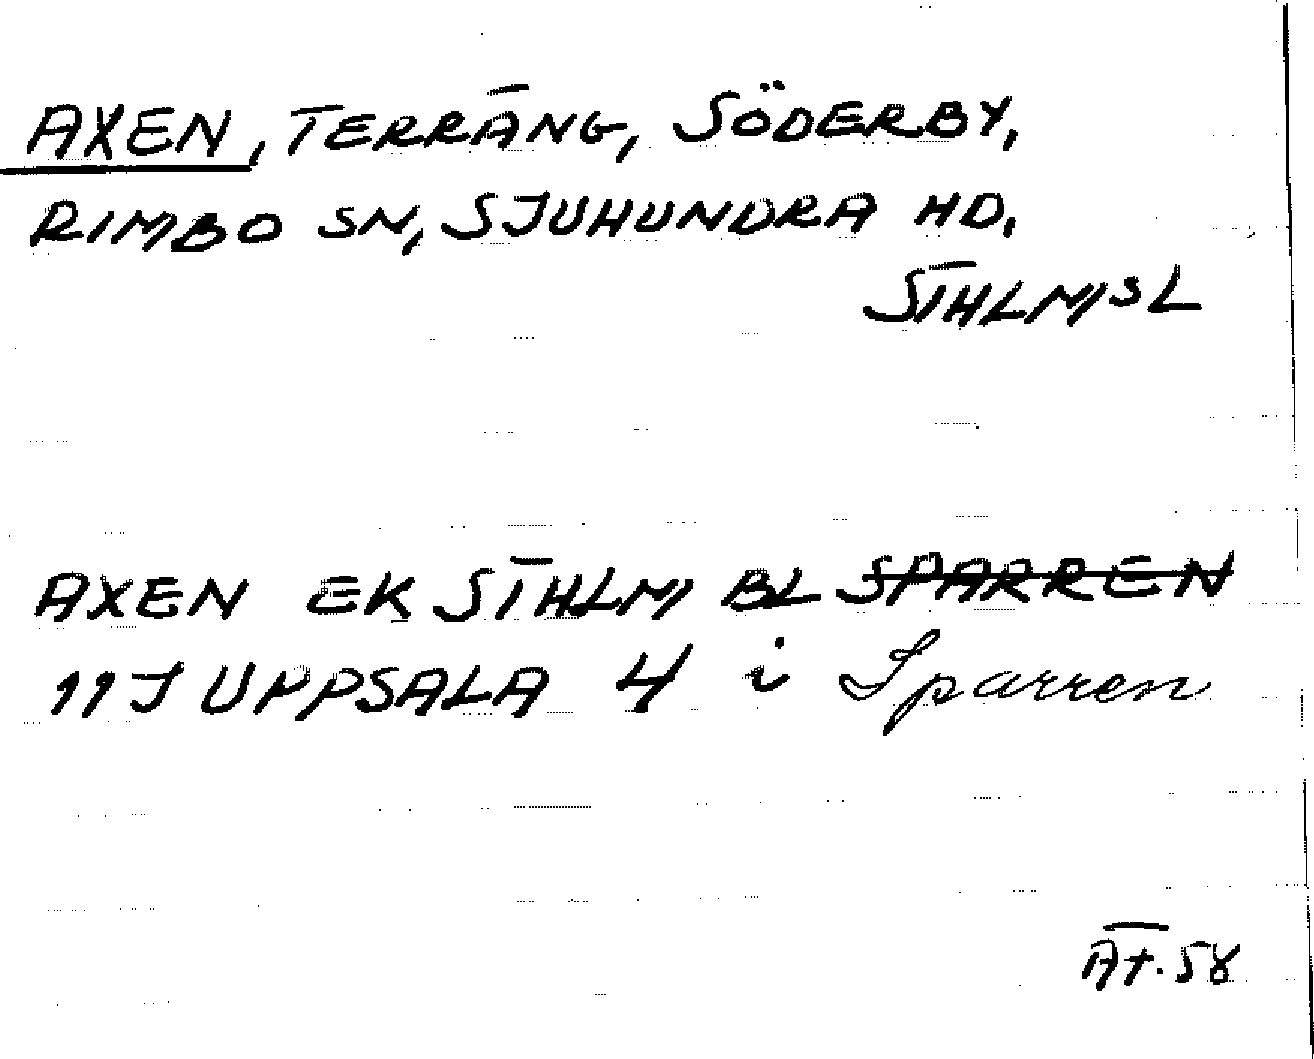 AXEN, TERRÄNG, SÖDERBY,
RIMBO SN, SJUHUNDRA HD,
STHLMSL
AXEN EK STHLM BL SPARREN
11J UPPSALA 4 i Sparren
ÄT. 58